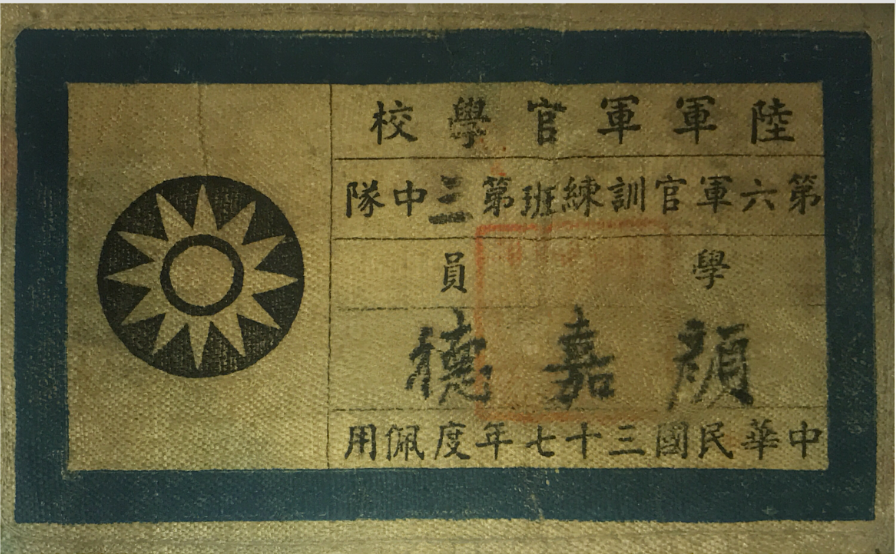 陸軍軍官學校
第六軍官訓練班第三中隊
學員
顏嘉德
中華民國三十七年度佩用